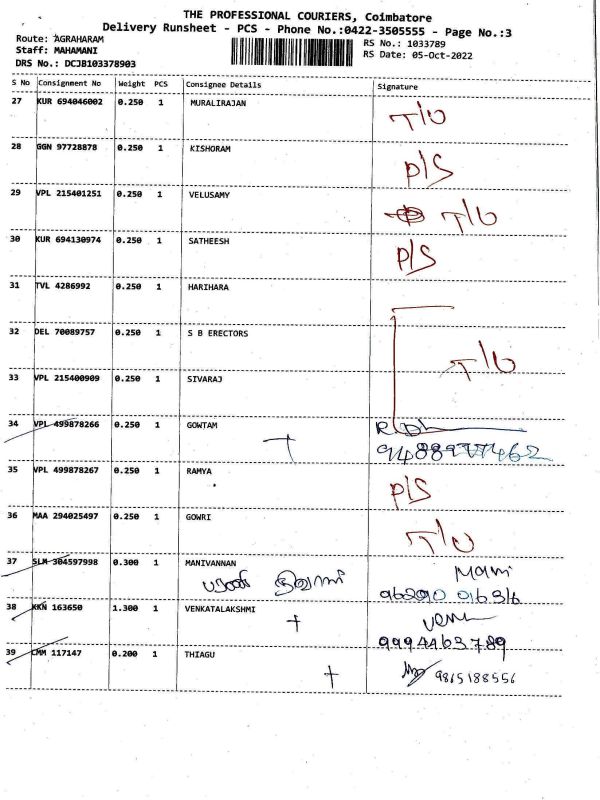 THE PROFESSIONAL COURIERS, Coimbatore
Delivery Runsheet - PCS - Phone No.:0422-3505555 - Page No.:3
Route: AGRAHARAM
Staff: MAHAMANI
DRS No.: DCJB103378903
RS No.: 1033789
RS Date: 05-Oct-2022
S No Consignment No Weight PCS Consignee Details Signature
27 KUR 694046002 0.250 1 MURALIRAJAN T/U
28 GGN 97728878 0.250 1 KISHORAM P/S
29 VPL 215401251 0.250 1 VELUSAMY T/U
30 KUR 694130974 0.250 1 SATHEESH P/S
31 TVL 4286992 0.250 1 HARIHARA
32 DEL 70089757 0.250 1 S B ERECTORS T/U
33 VPL 215400909 0.250 1 SIVARAJ
34 VPL 499878266 0.250 1 GOWTAM
35 VPL 499878267 0.250 1 RAMYA P/S
36 MAA 294025497 0.250 1 GOWRI T/U
37 SLM 304597998 0.300 1 MANIVANNAN Mani
96290 01636
38 KKN 163650 1.300 1 VENKATALAKSHMI
9994463789
39 CMM 117147 0.200 1 THIAGU 9865188556